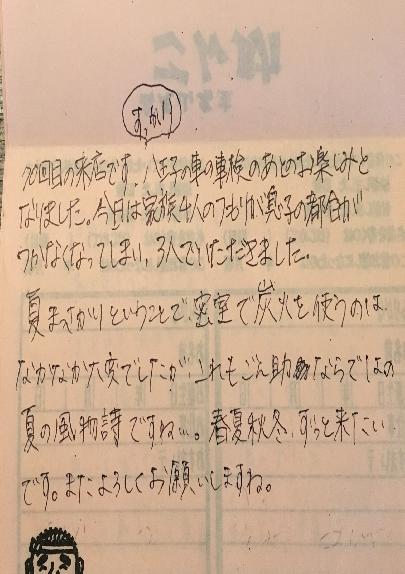 すっかり
回目の来店です。八王子の車の車検のあとのお楽しみと
なりました。今日は家族4人のつもりが息子の都合が
つかなくなってしまい、3人でいただきました。
夏まっさかりということで、密室で炭火を使うのは
なかなか大変でしたが、これもごん助ならではの
夏の風物詩ですね…。春夏秋冬、ずっと来たい
です。またよろしくお願いしますね。